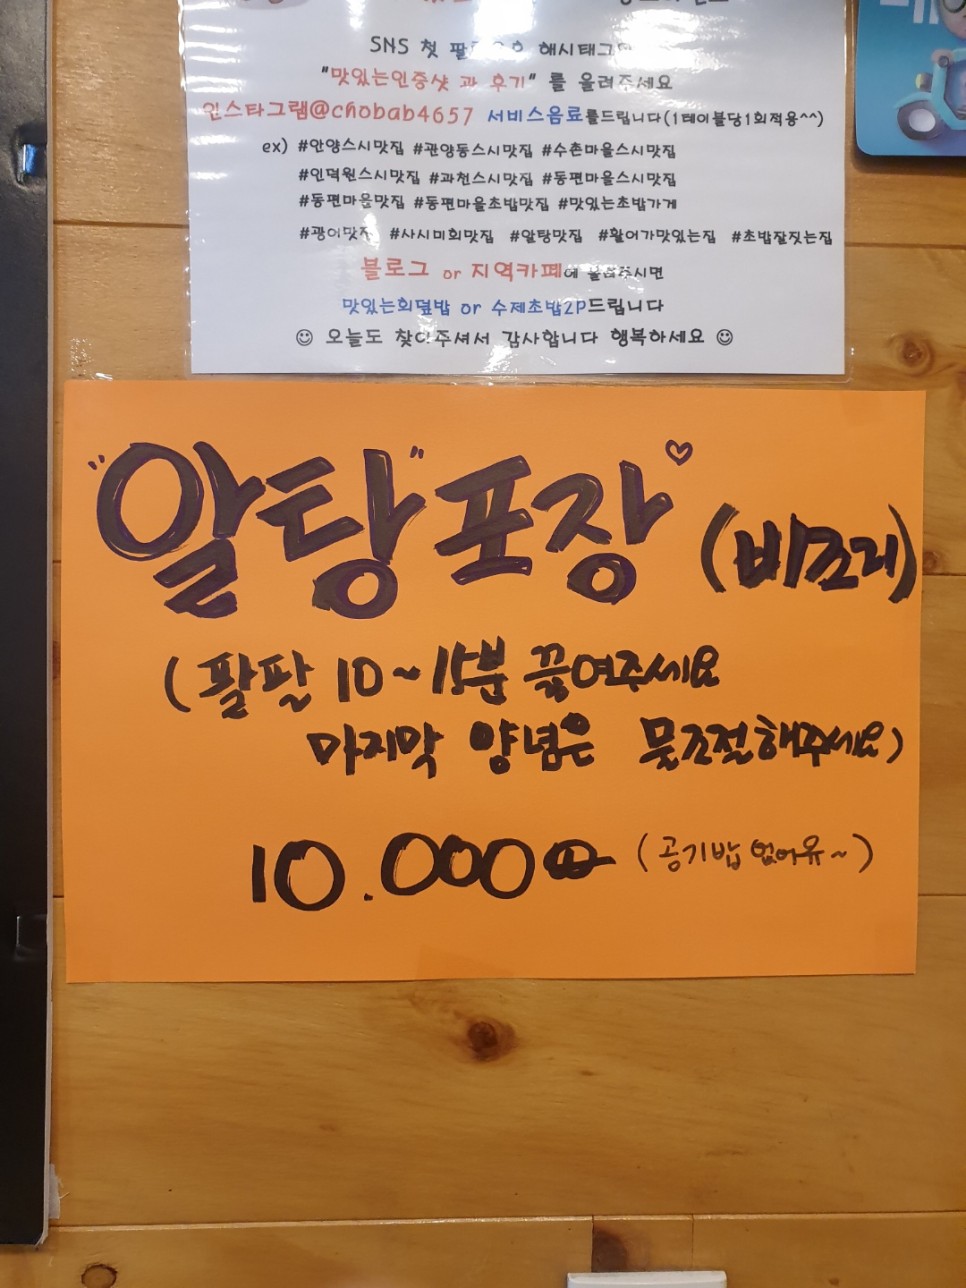 SNS 첫 해시태그
"맛있는인증샷 과 후기" 를 올려주세요
인스타그램@chobab4657 서비스음료를드립니다(1테이블당1회적용^^)
ex) #안양스시맛집 #관양동스시맛집 #수촌마을스시맛집
#인덕원스시맛집 #과천스시맛집 #동편마을스시맛집
#동편마을맛집 #동편마을초밥맛집 #맛있는초밥가게
#광어맛집 #사시미회맛집 #알탕맛집 #활어가맛있는집 #초밥잘짓는집
블로그 or 지역카페에 올려주시면
맛있는회덮밥 or 수제초밥2P드립니다
☺ 오늘도 찾아주셔서 감사합니다 행복하세요 ☺
"알탕" 포장♡ (비조리)
(팔팔 10~15분 끓여주세요
마지막 양념은 물조절해주세요)
10.000₩ (공기밥 없어유~)